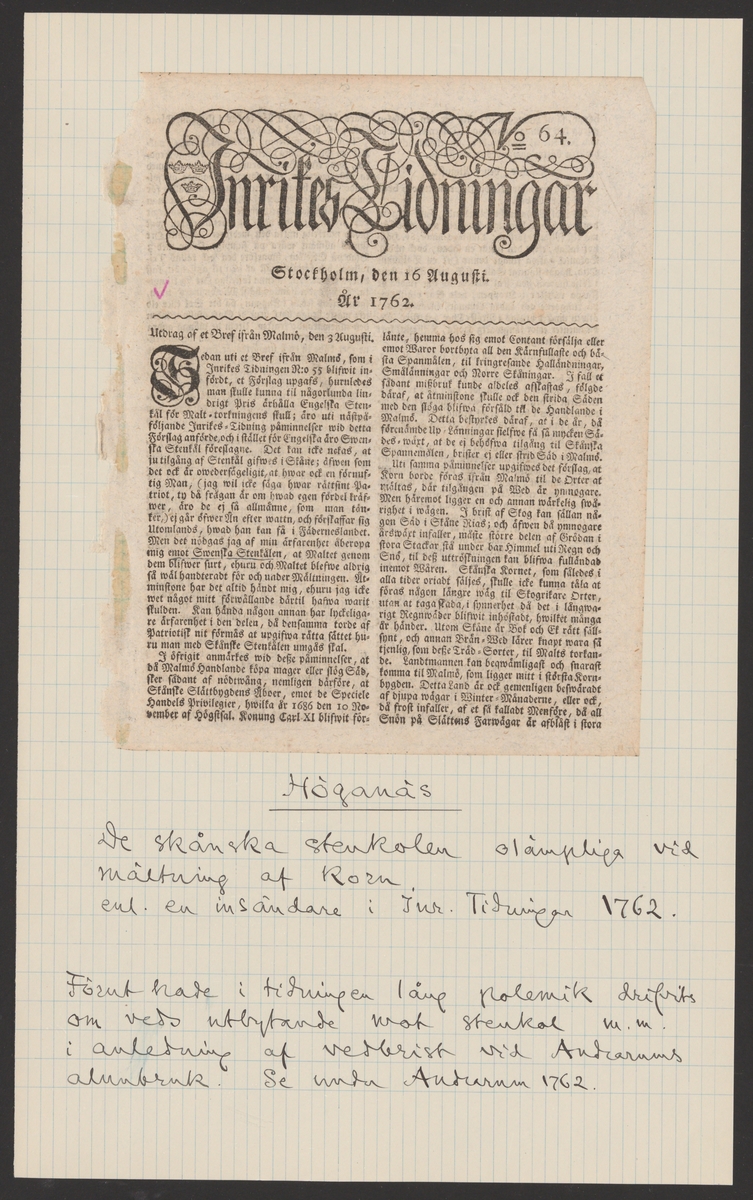 No 64.
Inrikes Tidningar
Stockholm, den 16 Augusti.
År 1762.
Utdrag of et Bref ifrån Malmö, den 3 Augusti.
Sedan uti et Bref ifrån Malmö, som i
Inrikes Tidningen N:o 55 blifwit in-
fördt, et Förslag upgafs, huruledes
man skulle kunna til någorlunda lin-
drigt Pris århålla Engelska Sten-
kål för Malt-torkningens skull; äro uti nästpå-
följande Inrikes-Tidning påminnelser wid detta
Förslag anförde, och i stället för Engelska äro Swen-
ska Stenkål föreslagne. Det kan icke nekas, at
ju tilgång af Stenkål gifwes i Skåne; äfwen som
det ock är owedersägeligit, at hwar ock en förnuf-
tig Man, (jag wil icke säga hwar rättsint Pa-
triot, ty då frågan är om hwad egen fördel kräf-
wer, äro de ej så allmänne, som man tän-
ker,) ej går öfwer Ån efter wattn, och förskaffar sig
Utomlands, hwad han kan få i Fäderneslandet.
Men det nödgas jag af min ärfarenhet åberopa
mig emot Swenska Stenkålen, at Maltet genom
dem blifwer surt, ehuru och Maltet blefwe aldrig
så wäl handteradt för och under Mältningen. Åt-
minstone har det altid händt mig, ehuru jag icke
wet något mitt förwållande därtil hafwa warit
skulden. Kan hända någon annan har lyckeliga-
re ärfarenhet i den delen, då densamma torde af
Patriotisk nit förmås at upgifwa rätta sättet hu-
ru man med Skånske Stenkålen umgås skal.
I öfrigit anmärkes wid desse påminnelser, at
då Malmö Handlande köpa mager eller slög Säd,
sker sådant af nödtwång, nemligen därföre, at
Skånske Slättbygdens Åboer, emot de Speciele
Handels Privilegier, hwilka år 1686 den 10 No-
vember af Högstsal. Konung Carl XI blifwit för-
länte, hemma hos sig emot Contant försälja eller
emot Waror bortbyta all den Kärnfullaste och bä-
sta Spanmålen, til kringresande Hallåndningar,
Smålänningar och Norre Skåningar. I fall et
sådant mißbruk kunde aldeles afskaffas, följde
däraf, at åtminstone skulle ock den strida Säden
med den slöga blifwa försåld til de Handlande i
Malmö. Detta bestyrkes däraf, at i de år, då
förenämde Up-Länningar sielfwe få så mycken Sä-
des-wäxt, at de ej behöfwa tilgång til Skånska
Spannemålen, brister ej eller strid Säd i Malmö.
Uti samma påminnelser upgifwes det förslag, at
Korn borde föras ifrån Malmö til de Orter at
mältas, där tilgången på Wed är ymnogare.
Men häremot ligger en och annan wärkelig swå-
righet i wägen. I brist af Skog kan sällan nå-
gon Säd i Skåne Rias; och äfwen då ymnogare
årswäxt infaller, måste större delen af Grödan i
stora Stackar stå under bar Himmel uti Regn och
Snö, til deß uttröskningen kan blifwa fulländad
inemot Wåren. Skånska Kornet, som således i
alla tider oriadt säljes, skulle icke kunna tåla at
föras någon längre wäg til Skogrikare Orter,
utan at taga skada, i synnerhet då det i långwa-
rigt Regnwäder blifwit inhöstadt, hwilket många
år händer. Utom Skåne är Bok och Ek rätt säll-
synt, och annan Brän-Wed lärer knapt wara så
tjenlig, som deße Träd-Sorter, til Malts torkan-
de. Landtmannen kan beqwämligast och snarast
komma til Malmö, som ligger mitt i största Korn-
bygden. Detta Land är ock gemenligen beswäradt
af djupa wägar i Winter-Månaderne, eller ock,
då frost infaller, af et så kalladt Menföre, då all
Snön på Slättens Farwägar är afbläst i stora
Höganäs
De skånska stenkolen olämpliga vid
mältning af korn,
enl. en insändare i Inr. Tidningar 1762.
Förut hade i tidningen lång polemik drifvits
om veds utbytande mot stenkol m.m.
i anledning af vedbrist vid Andrarums
alunbruk. Se under Andrarum 1762.